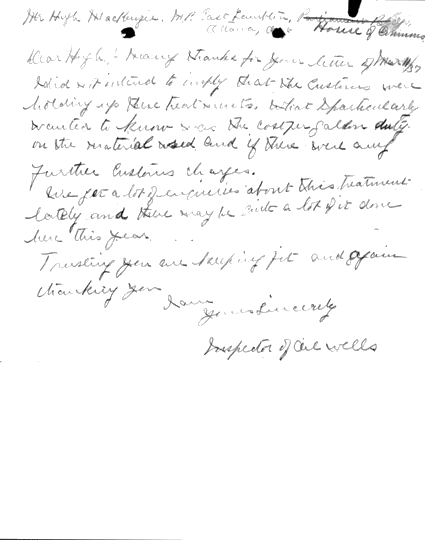 Mr Hugh MacKenzie, M.P. East Lambton,
Ottawa, Ont
House of Commons
Dear Hugh,: Many thanks for your letter of Mar 11/37
I did not intend to imply that the Customs were
holding up these treatments. What I particularly
wanted to know was the cost per gallon duty
on the material used and if there were any
further Customs charges.
We get a lot of enquiries about this treatment
lately and there may be quite a lot of it done
here this year.
Trusting you are keeping fit and again
thanking you
I am
Yours Sincerely
Inspector of Oil wells